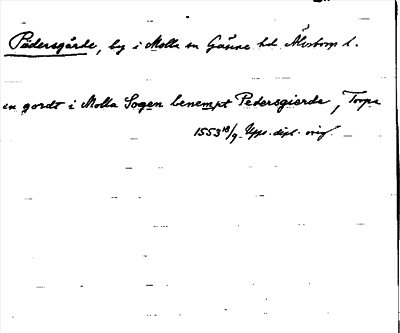 Pedersgärde, by i Molla sn Gäsene hd Älvsborgs l.
en gordt i Molla Sogen benempt Pedersgierde, Torpa
1553 18/9 Upps. dipl. orig.